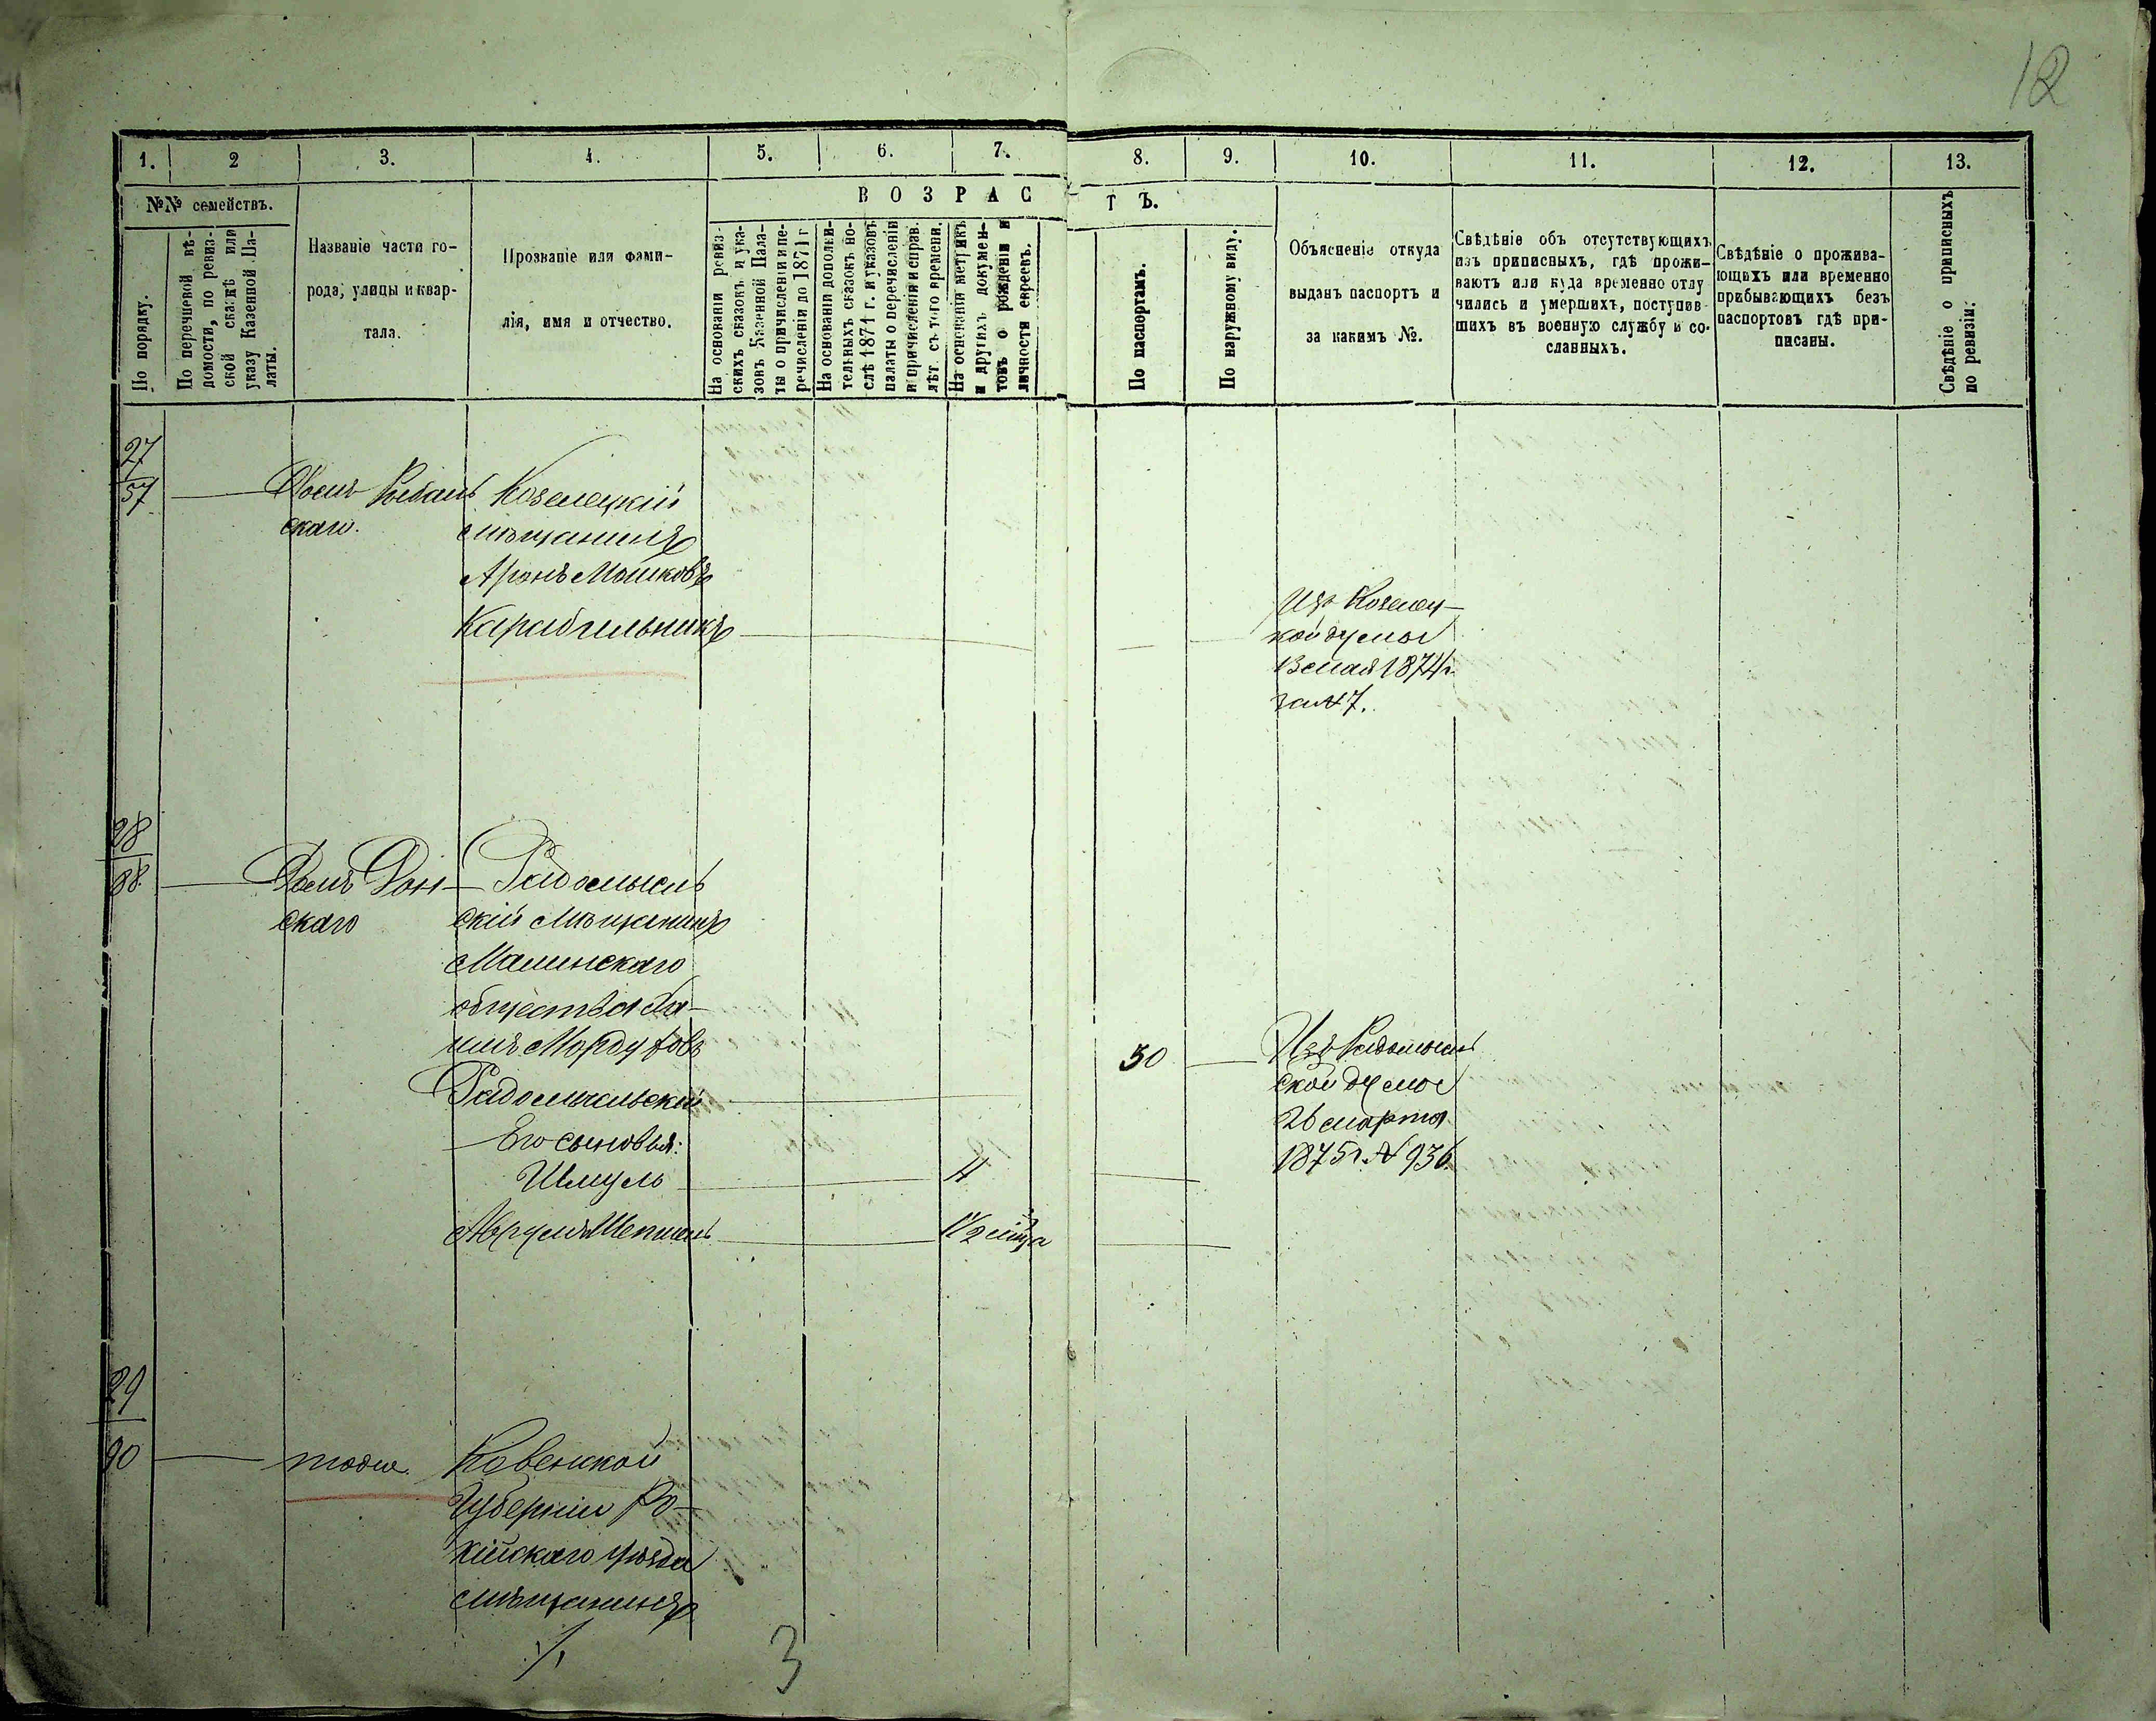 12
1. 2 3. 4. 5. 6. 7. 8. 9. 10. 11. 12. 13.
№№ семействъ.
По порядку.
По перечневой вѣ-
домости, по ревиз-
ской сказкѣ или
указу Казенной Па-
латы.
Названіе части го-
рода, улицы и квар-
тала.
Прозваніе или фами-
лія, имя и отчество.
ВОЗРАСТЪ.
На основаніи ревиз-
скихъ сказокъ и ука-
зовъ Казенной Пала-
ты о причисленіи и пе-
речисленіи до 1871 г
На основаніи дополни-
тельныхъ сказокъ по-
слѣ 1871 г. и указовъ
палаты о перечисленіи
и причисленіи и справ.
лѣт. съ того времени.
На основаніи метрикъ
и другихъ докумен-
товъ о рожденіи и
личности евреевъ.
По паспортамъ.
По наружному виду.
Объясненіе откуда
выданъ паспортъ и
за какимъ №.
Свѣдѣніе объ отсутствующихъ
изъ приписныхъ, гдѣ прожи-
ваютъ или куда временно отлу
чились и умершихъ, поступив-
шихъ въ военную службу и со-
сланныхъ.
Свѣдѣніе о прожива-
ющихъ или временно
прибывающихъ безъ
паспортовъ гдѣ при-
писаны.
Свѣдѣніе о приписныхъ
по ревизіи.
27
57
Домъ
скаго.
Козелецкій
мѣщанинъ
Аронъ Мошковъ
Карабельникъ
Изъ Козелец-
кой думы
13 мая 1874 г.
за № 7.
28
88.
Домъ Дон-
скаго
Радомысль
скій Мѣщанинъ
Малинскаго
общества Ха-
имъ Мордуховъ
Радомысльскій
50
Изъ Радомысль
ской думы
26 марта
1875 г. № 936.
Его сыновья:
Шмуль 4
Аврумъ 1 1/2 мѣца
29
90
тоже.
Ковенской
Губерніи
уѣзда
мѣщанинъ
./.
3